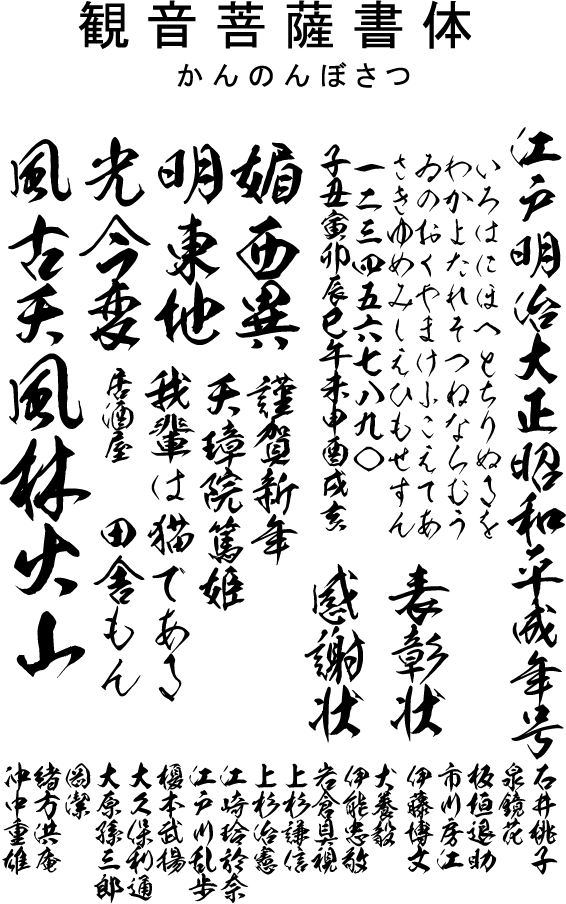 観音菩薩書体
かんのんぼさつ
江戸明治大正昭和平成年号
いろはにほへとちりぬるを
わかよたれそつねならむう
ゐのおくやまけふこえてあ
さきゆめみしゑひもせすん
一二三四五六七八九〇
子丑寅卯辰巳午未申酉戌亥
媚西異
明東地
光今変
風古天
謹賀新年
天璋院篤姫
我輩は猫である
居酒屋 田舎もん
風林火山
表彰状
感謝状
石井桃子
泉鏡花
板垣退助
市川房江
伊藤博文
犬養毅
伊能忠敬
岩倉具視
上杉謙信
上杉治憲
江崎玲於奈
江戸川乱歩
榎本武揚
大久保利通
大原孫三郎
岡潔
緒方洪庵
沖中重雄